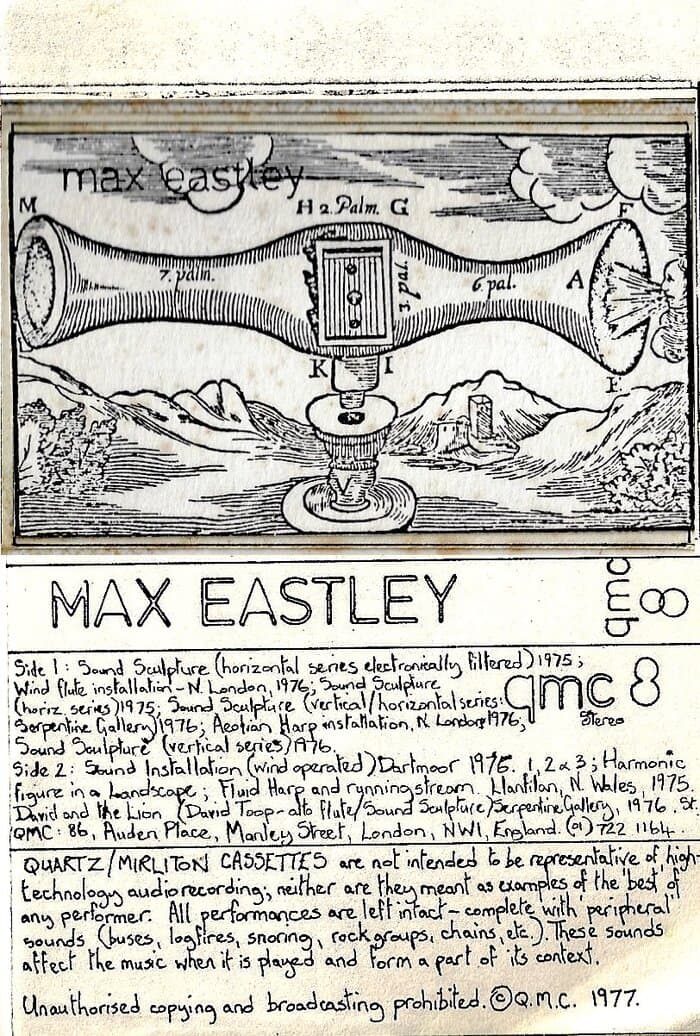 max eastley
M
H 2. Palm. G
F
7. palm.
3 pal.
6 pal.
A
K I
E
V
MAX EASTLEY
qmc 8
Side 1: Sound Sculpture (horizontal series electronically filtered) 1975;
Wind flute installation - N. London, 1976; Sound Sculpture
(horiz. series) 1975; Sound Sculpture (vertical/horizontal series:
Serpentine Gallery) 1976; Aeolian Harp installation, N. London 1976;
Sound Sculpture (vertical series) 1976.
qmc 8
Stereo
Side 2: Sound Installation (wind operated) Dartmoor 1976. 1, 2 & 3; Harmonic
figure in a Landscape; Fluid Harp and running stream. Llanfilan, N. Wales, 1975.
David and the Lion (David Toop - alto flute/Sound Sculpture) Serpentine Gallery, 1976.
QMC: 86, Auden Place, Manley Street, London, NW1, England. (01) 722 1164.
QUARTZ/MIRLITON CASSETTES are not intended to be representative of high-
technology audio recording; neither are they meant as examples of the 'best' of
any performer. All performances are left intact - complete with 'peripheral'
sounds (buses, logfires, snoring, rock groups, chains, etc.). These sounds
affect the music when it is played and form a part of its context.
Unauthorised copying and broadcasting prohibited. © Q.M.C. 1977.